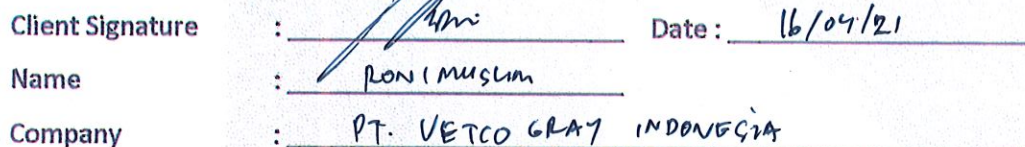 Client Signature : Date : 16/04/21
Name : RONI MUSLIM
Company : PT. VETCO GRAY INDONESIA